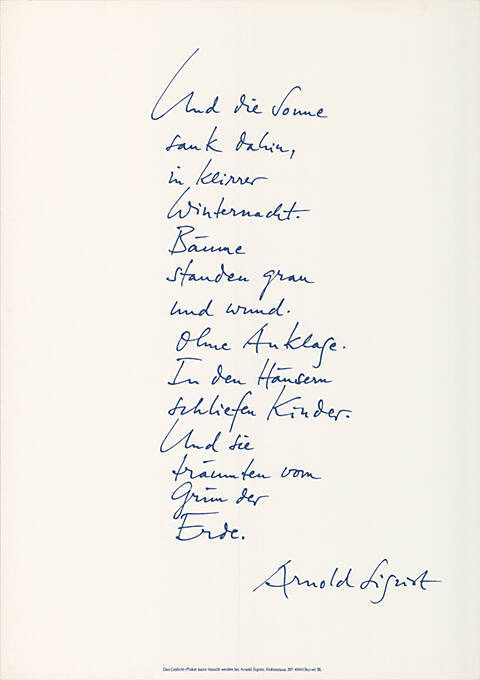 Und die Sonne
sank dahin,
in klirrer
Winternacht.
Bäume
standen grau
und wund.
Ohne Anklage.
In den Häusern
schliefen Kinder.
Und sie
träumten vom
Grün der
Erde.
Arnold Sigrist
Das Gedicht-Plakat kann bestellt werden bei Arnold Sigrist, 4104 Oberwil BL